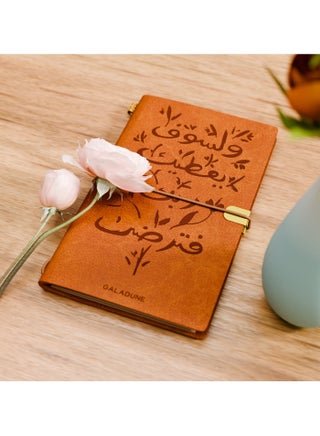 ولسوف
يعطيك
ربك
فترضى
GALADUNE